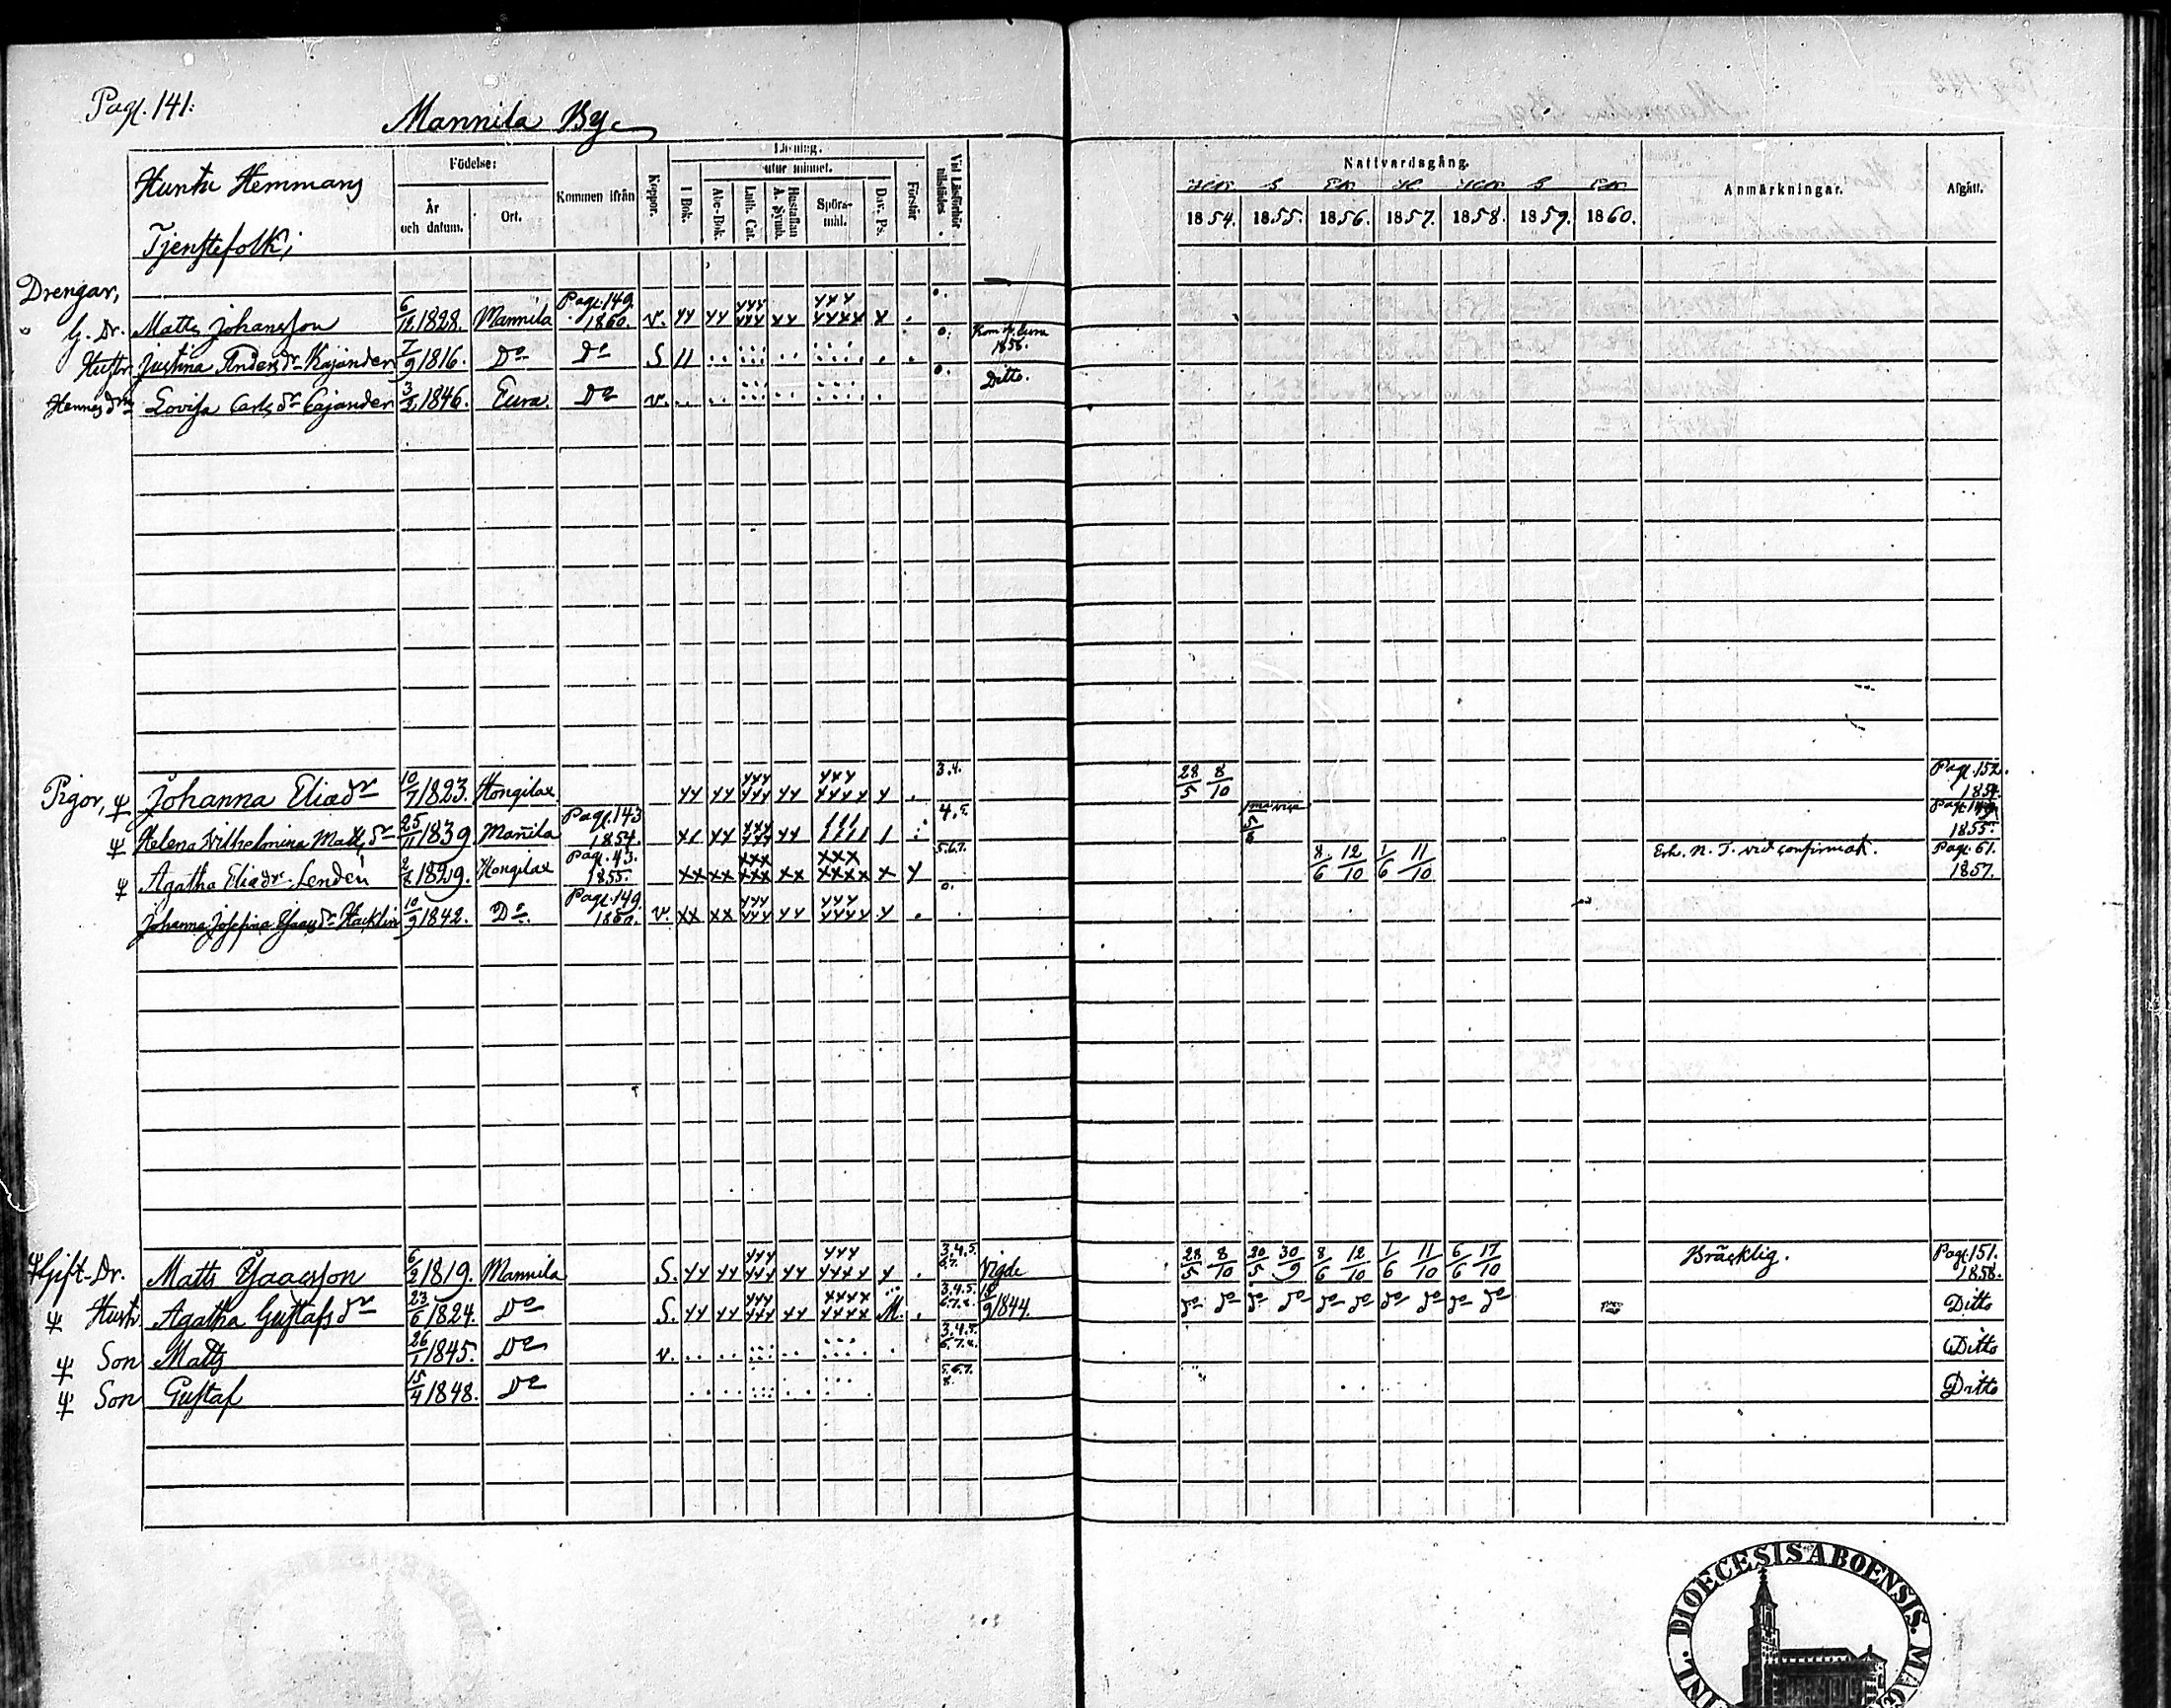 Pag. 141:
Mannila By.
Huntu Hemmans
Tjenstefolk;
Födelse:
År och datum.
Ort.
Kommen ifrån
Koppor.
Läsning.
utur minnet.
I Bok.
Abc-Bok.
Luth. Cat.
Hustaflan A. Symb.
Spörs-mål.
Dav. Ps.
Förstår
Vid Läsförhör tillstädes
Nattvardsgång.
1854. 1855. 1856. 1857. 1858. 1859. 1860.
Anmärkningar.
Afgått.
Drengar,
G. Dr. Matts Johansson 6/12 1828. Mannila Pag. 149. 1860. v. yy yy yyy yyy xx yyy yyyy x . 0.
Hustr. Justina Anders dr Kajander 7/9 1816. Do Do S 11 0. Kom fr. Eura 1856.
Hennes dr Lovisa Carls dr Cajander 3/2 1846. Eura. Do v. 0. Ditto.
Pigor, Johanna Elias dr 10/7 1823. Hongilax yy yy yyy yyy yy yyy yyyy y . 3.4. 28/5 8/10 Pag. 152. 1854.
Helena Wilhelmina Matts dr 25/11 1839. Mannila Pag. 143 1854. 4.5. 5/8 1855.
Agatha Elias dr Lendén 1829. Hongilax Pag. 43. 1855. xx xx xxx xxx xx xxx xxxx x y 5.6.7. 8/6 12/10 1/6 11/10 Erh. N. T. vid confirmat. Pag. 61. 1857.
Johanna Josefina Isaacs dr Hacklin 10/9 1842. Do. Pag. 149. 1860. v. xx xx yyy yyy yy yyy yyyy y . 0.
Gift-Dr. Matts Isaacsson 6/2 1819. Mannila S. yy yy yyy yyy yy yyy yyyy y . 3.4.5. 6.7. Vigde 28/5 8/10 20/5 30/9 8/6 12/10 1/6 11/10 6/6 17/10 Bräcklig. Pag. 151. 1858.
Hustr. Agatha Gustafs dr 23/6 1824. Do S. yy yy yyy yyy xx xxxx xxxx M. . 3.4.5. 6.7.8. 9/1844. do do do do do do do do do do Ditto
Son Matts 26/1 1845. Do v. 3.4.5. 6.7.8. Ditto
Son Gustaf 15/4 1848. Do 5.6.7. 8. Ditto
DIOECESIS ABOENSIS.